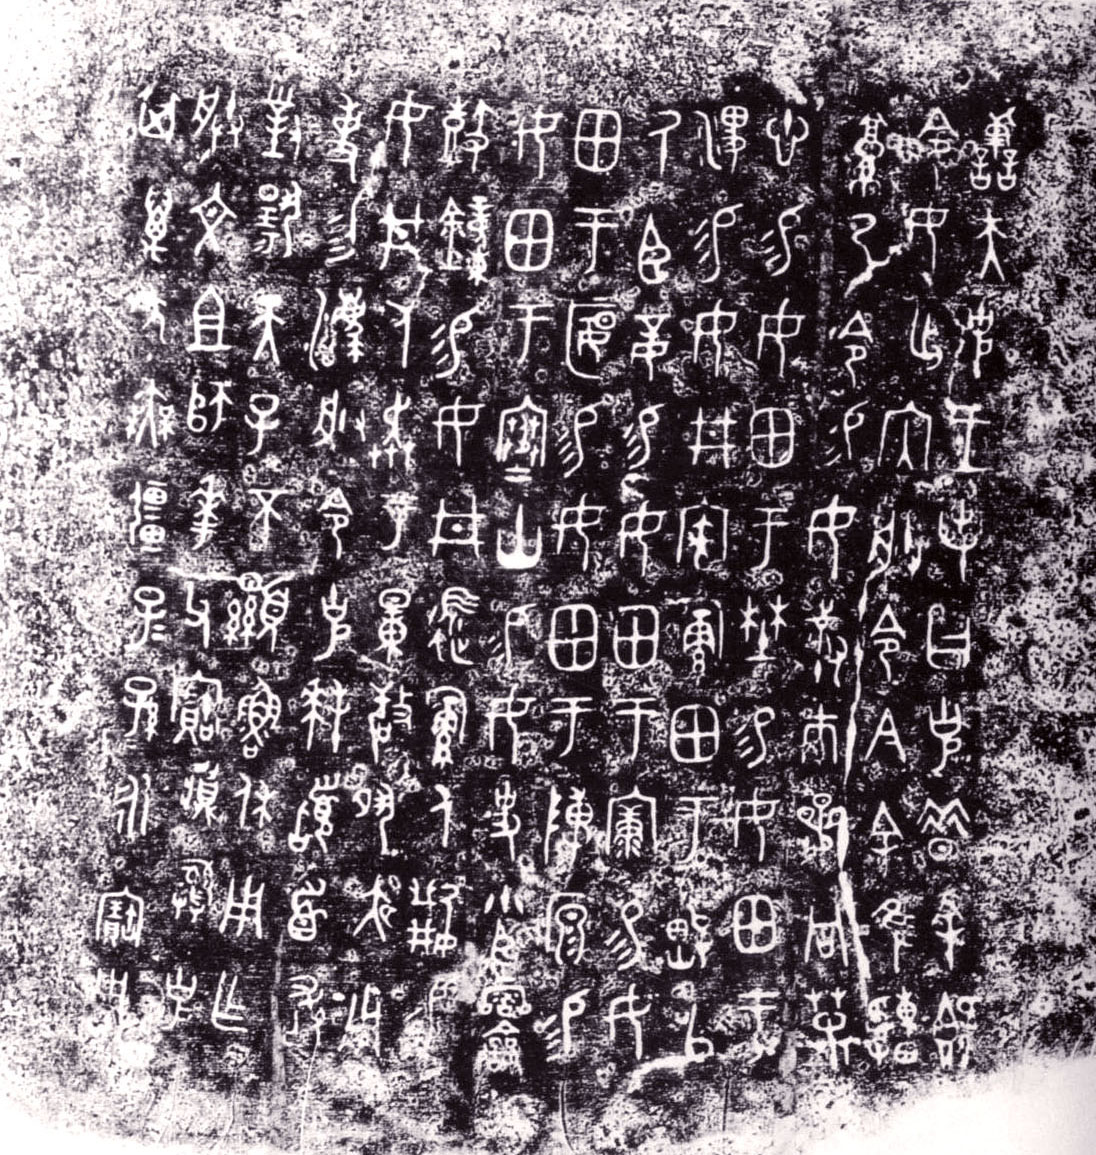 譱夫克王若曰克昔余既
令女出內朕令今余隹𤕌
乃令易女叔巿參冋
悤易女田于埜易女田于
渒易女井家田于畯山以
厥臣妾易女田于康易女
田于匽易女田于陴原易
女田于寒山易女史小臣霝龠
鼓鐘易女井徵人易
女井人奔于量敬夙夜用
事勿灋朕令克拜稽首敢
對揚天子不顯魯休用乍
朕文且師華父寶彝克
其萬年無彊子子孫孫永寶用